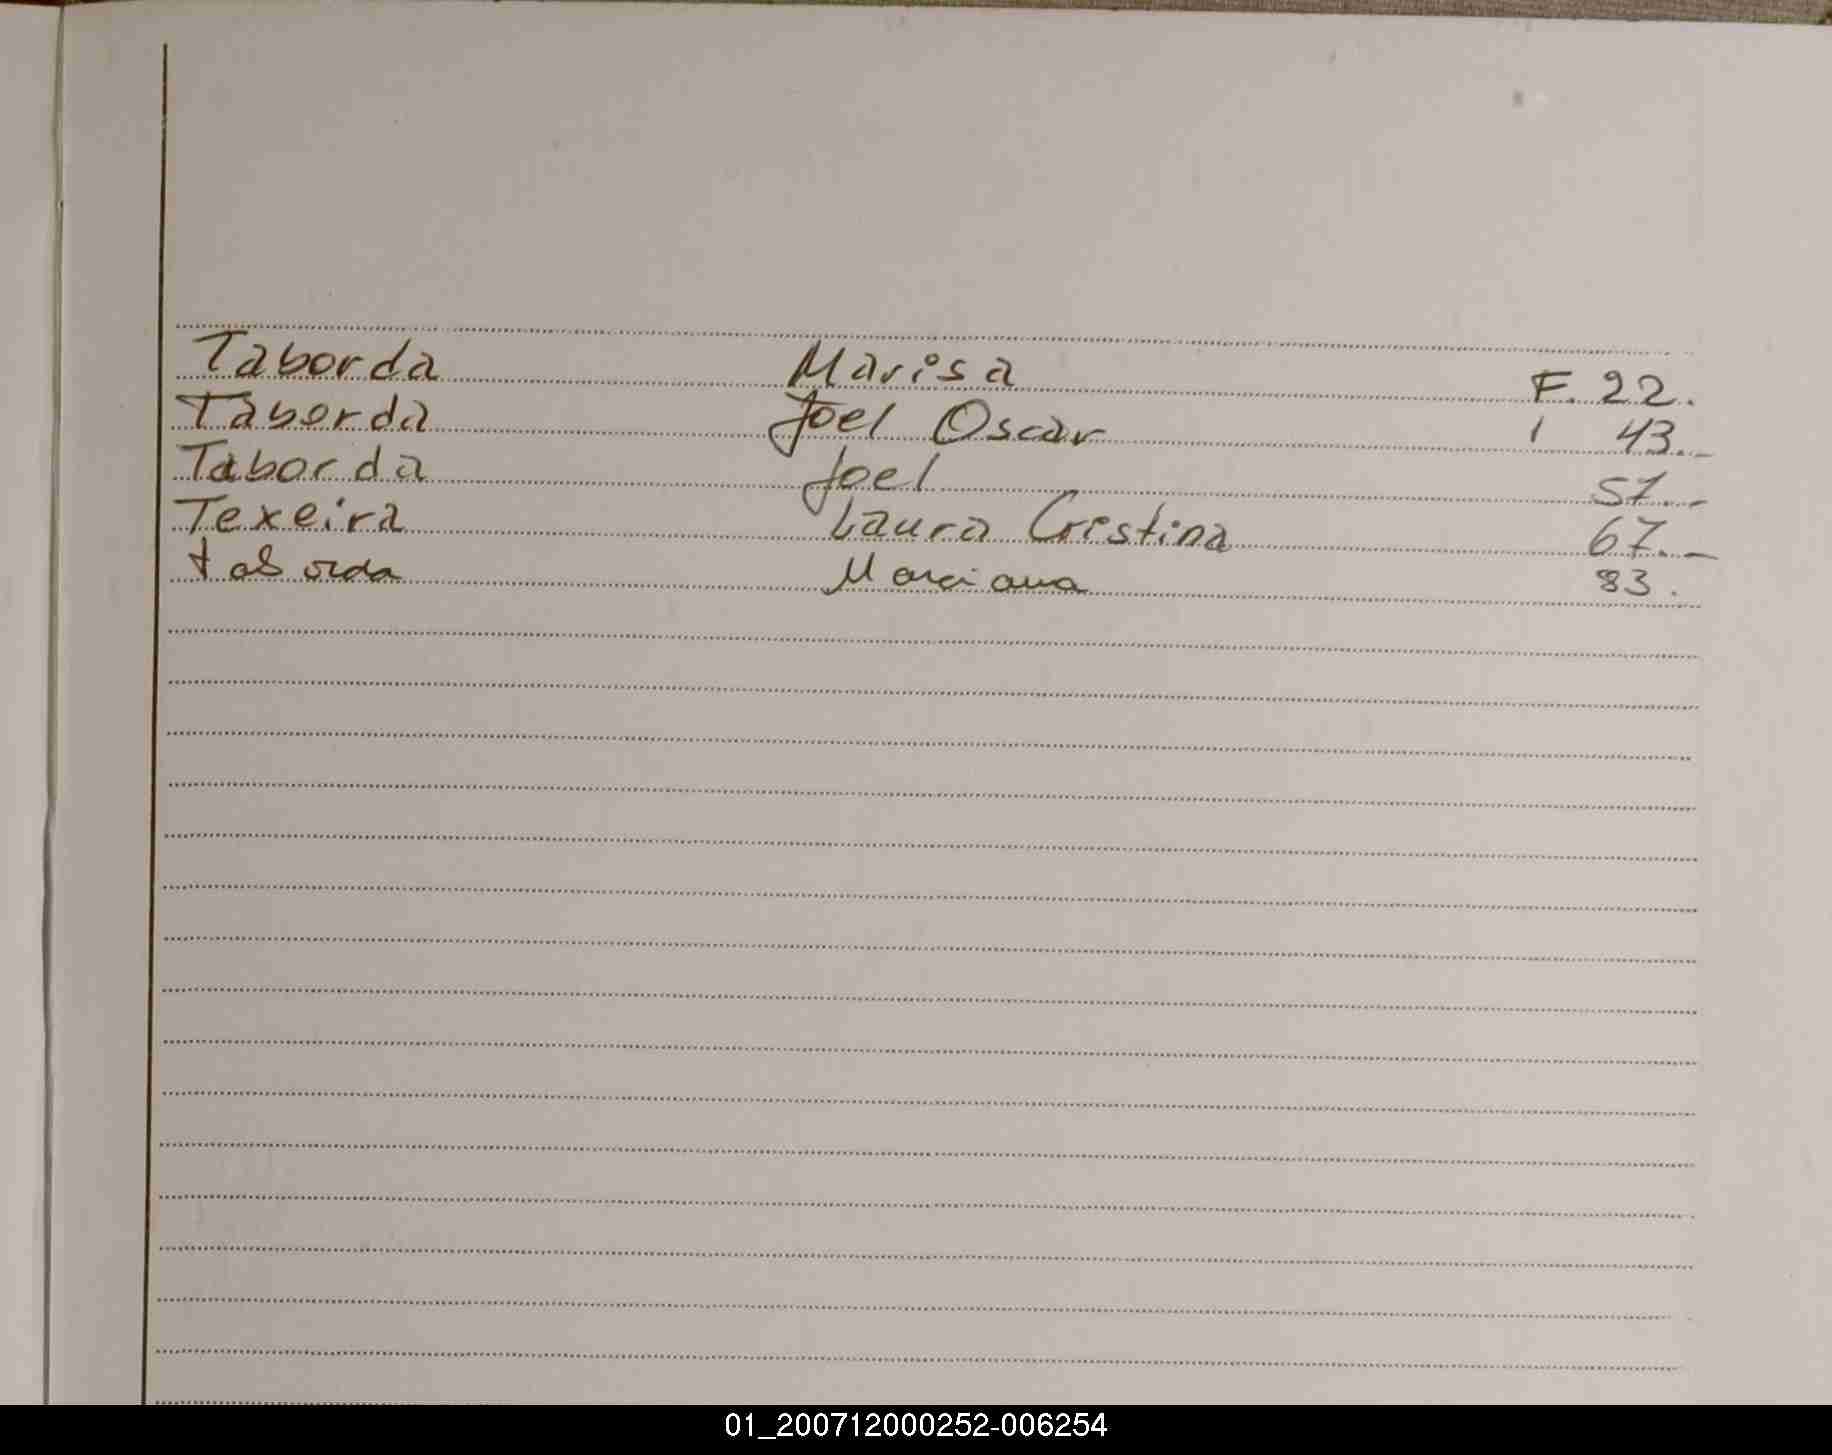 Taborda Marisa F. 22.
Taborda Joel Oscar 1 43.-
Taborda Joel 57.-
Texeira Laura Cristina 67.-
taborda Marciana 83.
01_200712000252-006254